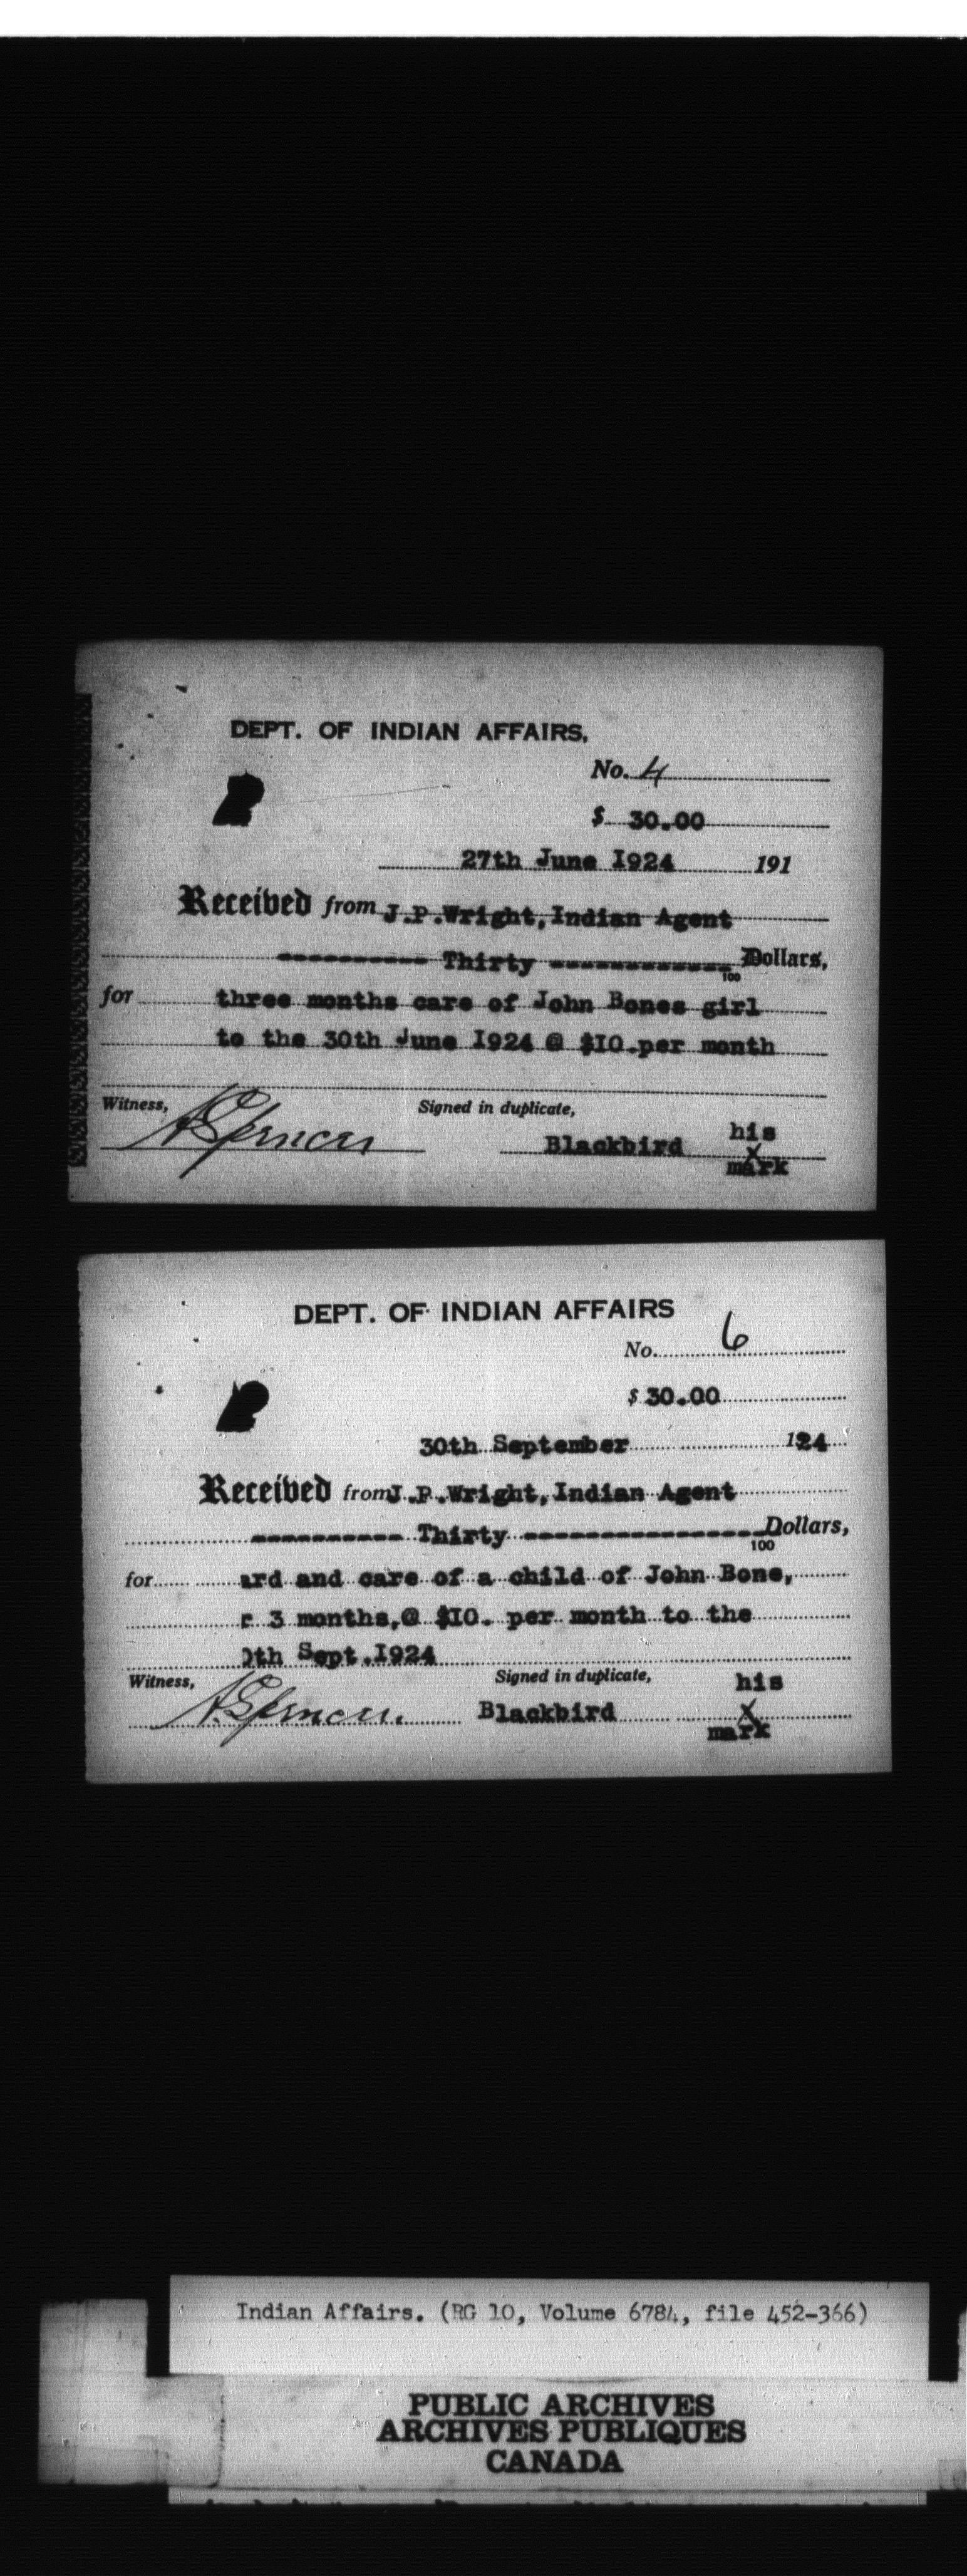 DEPT. OF INDIAN AFFAIRS,
No. 4
$ 30.00
27th June 1924 191
Received from J.P.Wright, Indian Agent
---------- Thirty ------------ 100 Dollars,
for three months care of John Bones girl
to the 30th June 1924 @ $10.per month
Witness, Signed in duplicate,
A Spencer Blackbird his
X
mark
DEPT. OF INDIAN AFFAIRS
No. 6
$ 30.00
30th September 124
Received from J.P.Wright, Indian Agent
---------- Thirty ---------------- Dollars,
100
for ard and care of a child of John Bone,
r 3 months,@ $10. per month to the
0th Sept.1924
Witness, Signed in duplicate, his
A. Spencer. Blackbird X
mark
Indian Affairs. (RG 10, Volume 6784, file 452-366)
PUBLIC ARCHIVES
ARCHIVES PUBLIQUES
CANADA